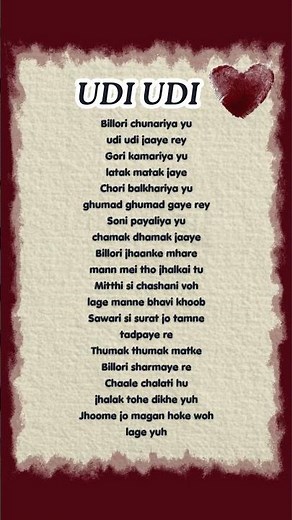 UDI UDI
Billori chunariya yu
udi udi jaaye rey
Gori kamariya yu
latak matak jaye
Chori balkhariya yu
ghumad ghumad gaye rey
Soni payaliya yu
chamak dhamak jaaye
Billori jhaanke mhare
mann mei tho jhalkai tu
Mitthi si chashani voh
lage manne bhavi khoob
Sawari si surat jo tamne
tadpaye re
Thumak thumak matke
Billori sharmaye re
Chaale chalati hu
jhalak tohe dikhe yuh
Jhoome jo magan hoke woh
lage yuh